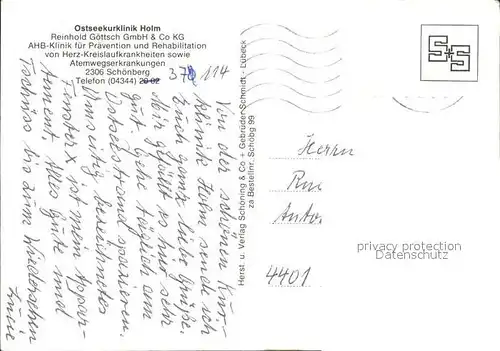 Ostseekurklinik Holm
Reinhold Göttsch GmbH & Co KG
AHB-Klinik für Prävention und Rehabilitation
von Herz-Kreislaufkrankheiten sowie
Atemwegserkrankungen
2306 Schönberg
Telefon (04344) 20 02
37 114
Von der schönen Kur-
klinik Holm sende ich
Euch ganz liebe Grüße.
Mir gefällt es hier sehr
gut. Gehe täglich am
Ostseestrand spazieren.
Umseitig bezeichnetes
Fenster x ist mein Appar-
tement. Alles Gute und
Tschüss bis zum Wiedersehen
Herst. u. Verlag Schöning & Co + Gebrüder Schmidt - Lübeck
za Bestellnr. Schöbg 99
Herrn
Anto
4401
privacy protection
Datenschutz